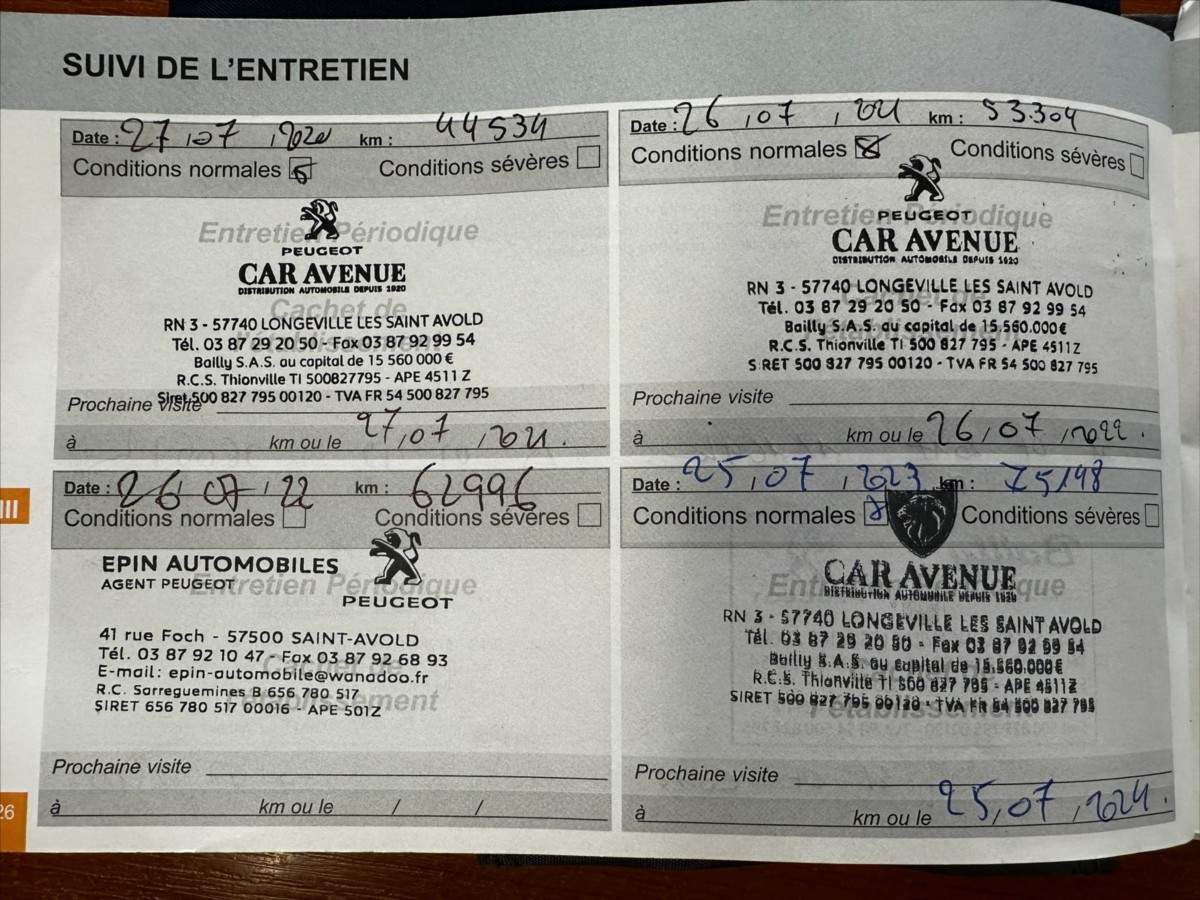 SUIVI DE L'ENTRETIEN
Date : 27 , 07 , 2020 km : 44534
Conditions normales Conditions sévères
Entretien Périodique
PEUGEOT
CAR AVENUE
DISTRIBUTION AUTOMOBILE DEPUIS 1920
Cachet de
RN 3 - 57740 LONGEVILLE LES SAINT AVOLD
l'établissement
Tél. 03 87 29 20 50 - Fax 03 87 92 99 54
Bailly S.A.S. au capital de 15 560 000 €
R.C.S. Thionville TI 500827795 - APE 4511 Z
Siret 500 827 795 00120 - TVA FR 54 500 827 795
Prochaine visite
à km ou le 27 , 07 , 2021.
Date : 26 , 07 , 2021 km : 53.304
Conditions normales Conditions sévères
Entretien Périodique
PEUGEOT
CAR AVENUE
DISTRIBUTION AUTOMOBILE DEPUIS 1920
RN 3 - 57740 LONGEVILLE LES SAINT AVOLD
Tél. 03 87 29 20 50 - Fax 03 87 92 99 54
Bailly S.A.S. au capital de 15.560.000€
R.C.S. Thionville TI 500 827 795 - APE 4511Z
SIRET 500 827 795 00120 - TVA FR 54 500 827 795
Prochaine visite
à km ou le 26 , 07 , 2022.
Date : 26 , 07 , 22 km : 62996
Conditions normales Conditions sévères
EPIN AUTOMOBILES
AGENT PEUGEOT
Entretien Périodique
PEUGEOT
41 rue Foch - 57500 SAINT-AVOLD
Tél. 03 87 92 10 47 - Fax 03 87 92 68 93
Cachet de
E-mail : epin-automobile@wanadoo.fr
R.C. Sarreguemines B 656 780 517
l'établissement
SIRET 656 780 517 00016 - APE 501Z
Prochaine visite
à km ou le / /
Date : 25 , 07 , 2023 km : 75198
Conditions normales Conditions sévères
CAR AVENUE
DISTRIBUTION AUTOMOBILE DEPUIS 1920
RN 3 - 57740 LONGEVILLE LES SAINT AVOLD
Tél. 03 87 29 20 50 - Fax 03 87 92 99 54
Bailly S.A.S. au capital de 15.560.000€
R.C.S. Thionville TI 500 827 795 - APE 4511Z
SIRET 500 827 795 00120 - TVA FR 54 500 827 795
l'établissement
Prochaine visite
à km ou le 25 , 07 , 2024.
III
26